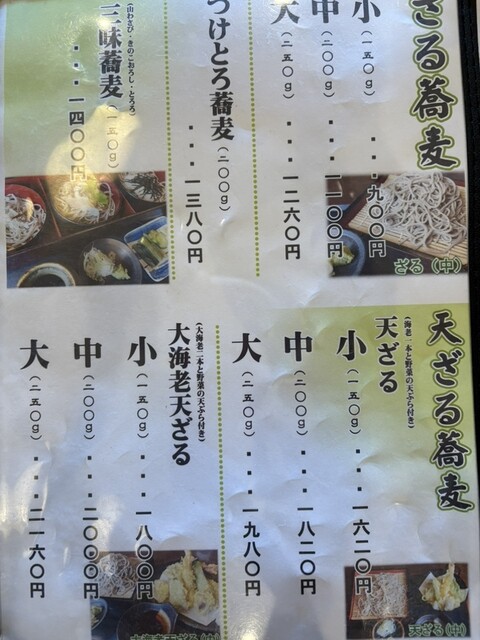 ざる蕎麦
小(一五〇g)・・・九〇〇円
中(二〇〇g)・・・一一〇〇円
大(二五〇g)・・・一二六〇円
つけとろ蕎麦(二〇〇g)
・・・一三八〇円
(山わさび・きのこおろし・とろろ)
三味蕎麦(一五〇g)
・・・一四〇〇円
ざる(中)
天ざる蕎麦
(海老一本と野菜の天ぷら付き)
天ざる
小(一五〇g)・・・一六二〇円
中(二〇〇g)・・・一八二〇円
大(二五〇g)・・・一九八〇円
(大海老二本と野菜の天ぷら付き)
大海老天ざる
小(一五〇g)・・・一八〇〇円
中(二〇〇g)・・・二〇〇〇円
大(二五〇g)・・・二一六〇円
天ざる(中)
大海老天ざる(中)